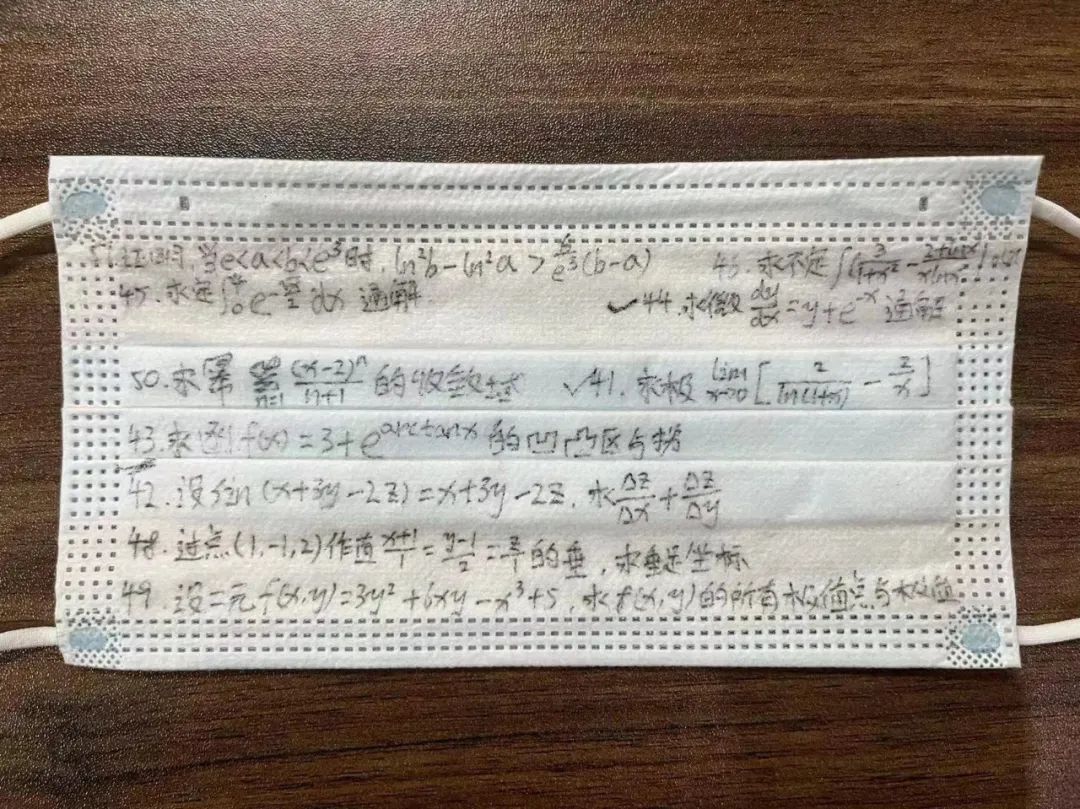 51.证明,当e<a<b<e³时,ln²b-ln²a>6/e³(b-a) 46.求不定∫(3/(1+x²)-
45.求定∫₀⁴e dx 通解 ✓44.求微 dy/dx=y+e⁻ˣ通解
50.求幂 ∑n=1 ∞ (x-2)ⁿ/(n+1) 的收敛域 ✓41.求极 lim x→0[2/ln(1+x) - 2/x]
43.求 f(x)=3+e^arctanx 的凹凸区与拐
42.设sin(x+3y-2z)=x+3y-2z.求Δz/Δx+Δz/Δy
48.过点(1,-1,2)作直(x+1)/1=(y-1)/2=z/1的垂,求垂足坐标
49.设二元f(x,y)=3y²+6xy-x³+5,求f(x,y)的所有极值点与极值